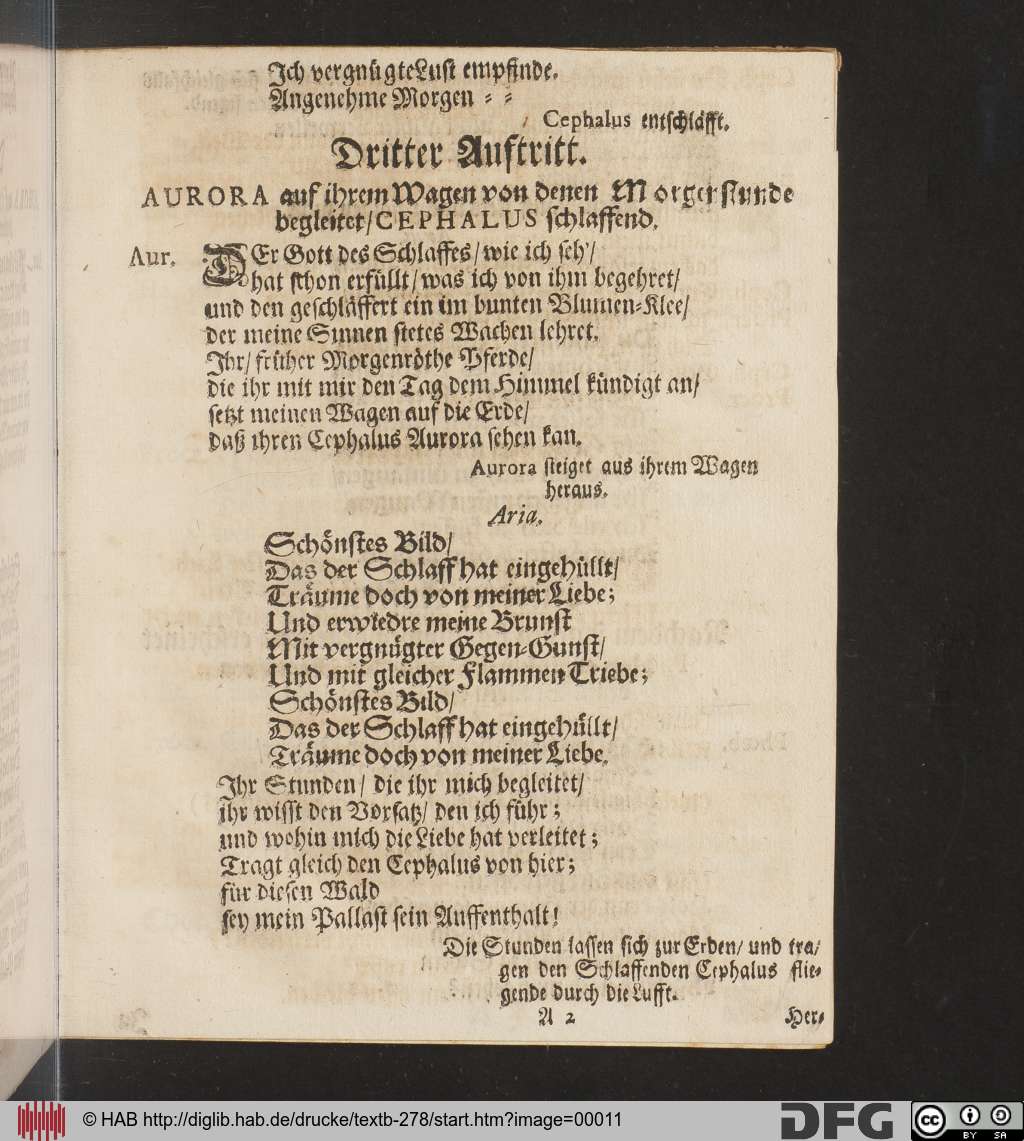 Ich vergnügte Lust empfinde.
Angenehme Morgen - -
Cephalus entschläfft.
Dritter Auftritt.
AURORA auf ihrem Wagen von denen Morgenstunde
begleitet/ CEPHALUS schlaffend.
Aur. DEr Gott des Schlaffes/ wie ich seh'/
hat schon erfüllt/ was ich von ihm begehret/
und den geschläffert ein im bunten Blumen-Klee/
der meine Sinnen stetes Wachen lehret.
Ihr/ früher Morgenröthe Pferde/
die ihr mit mir den Tag dem Himmel kündigt an/
setzt meinen Wagen auf die Erde/
daß ihren Cephalus Aurora sehen kan.
Aurora steiget aus ihrem Wagen
heraus.
Aria.
Schönstes Bild/
Das der Schlaff hat eingehüllt/
Träume doch von meiner Liebe;
Und erwiedre meine Brunst
Mit vergnügter Gegen-Gunst/
Und mit gleicher Flammen Triebe;
Schönstes Bild/
Das der Schlaff hat eingehüllt/
Träume doch von meiner Liebe.
Ihr Stunden/ die ihr mich begleitet/
ihr wisst den Vorsatz/ den ich führ;
und wohin mich die Liebe hat verleitet;
Tragt gleich den Cephalus von hier;
für diesen Wald
sey mein Pallast sein Auffenthalt!
Die Stunden lassen sich zur Erden/ und tra/
gen den Schlaffenden Cephalus flie-
gende durch die Lufft.
A 2
Her-
© HAB http://diglib.hab.de/drucke/textb-278/start.htm?image=00011
DFG
cc BY SA